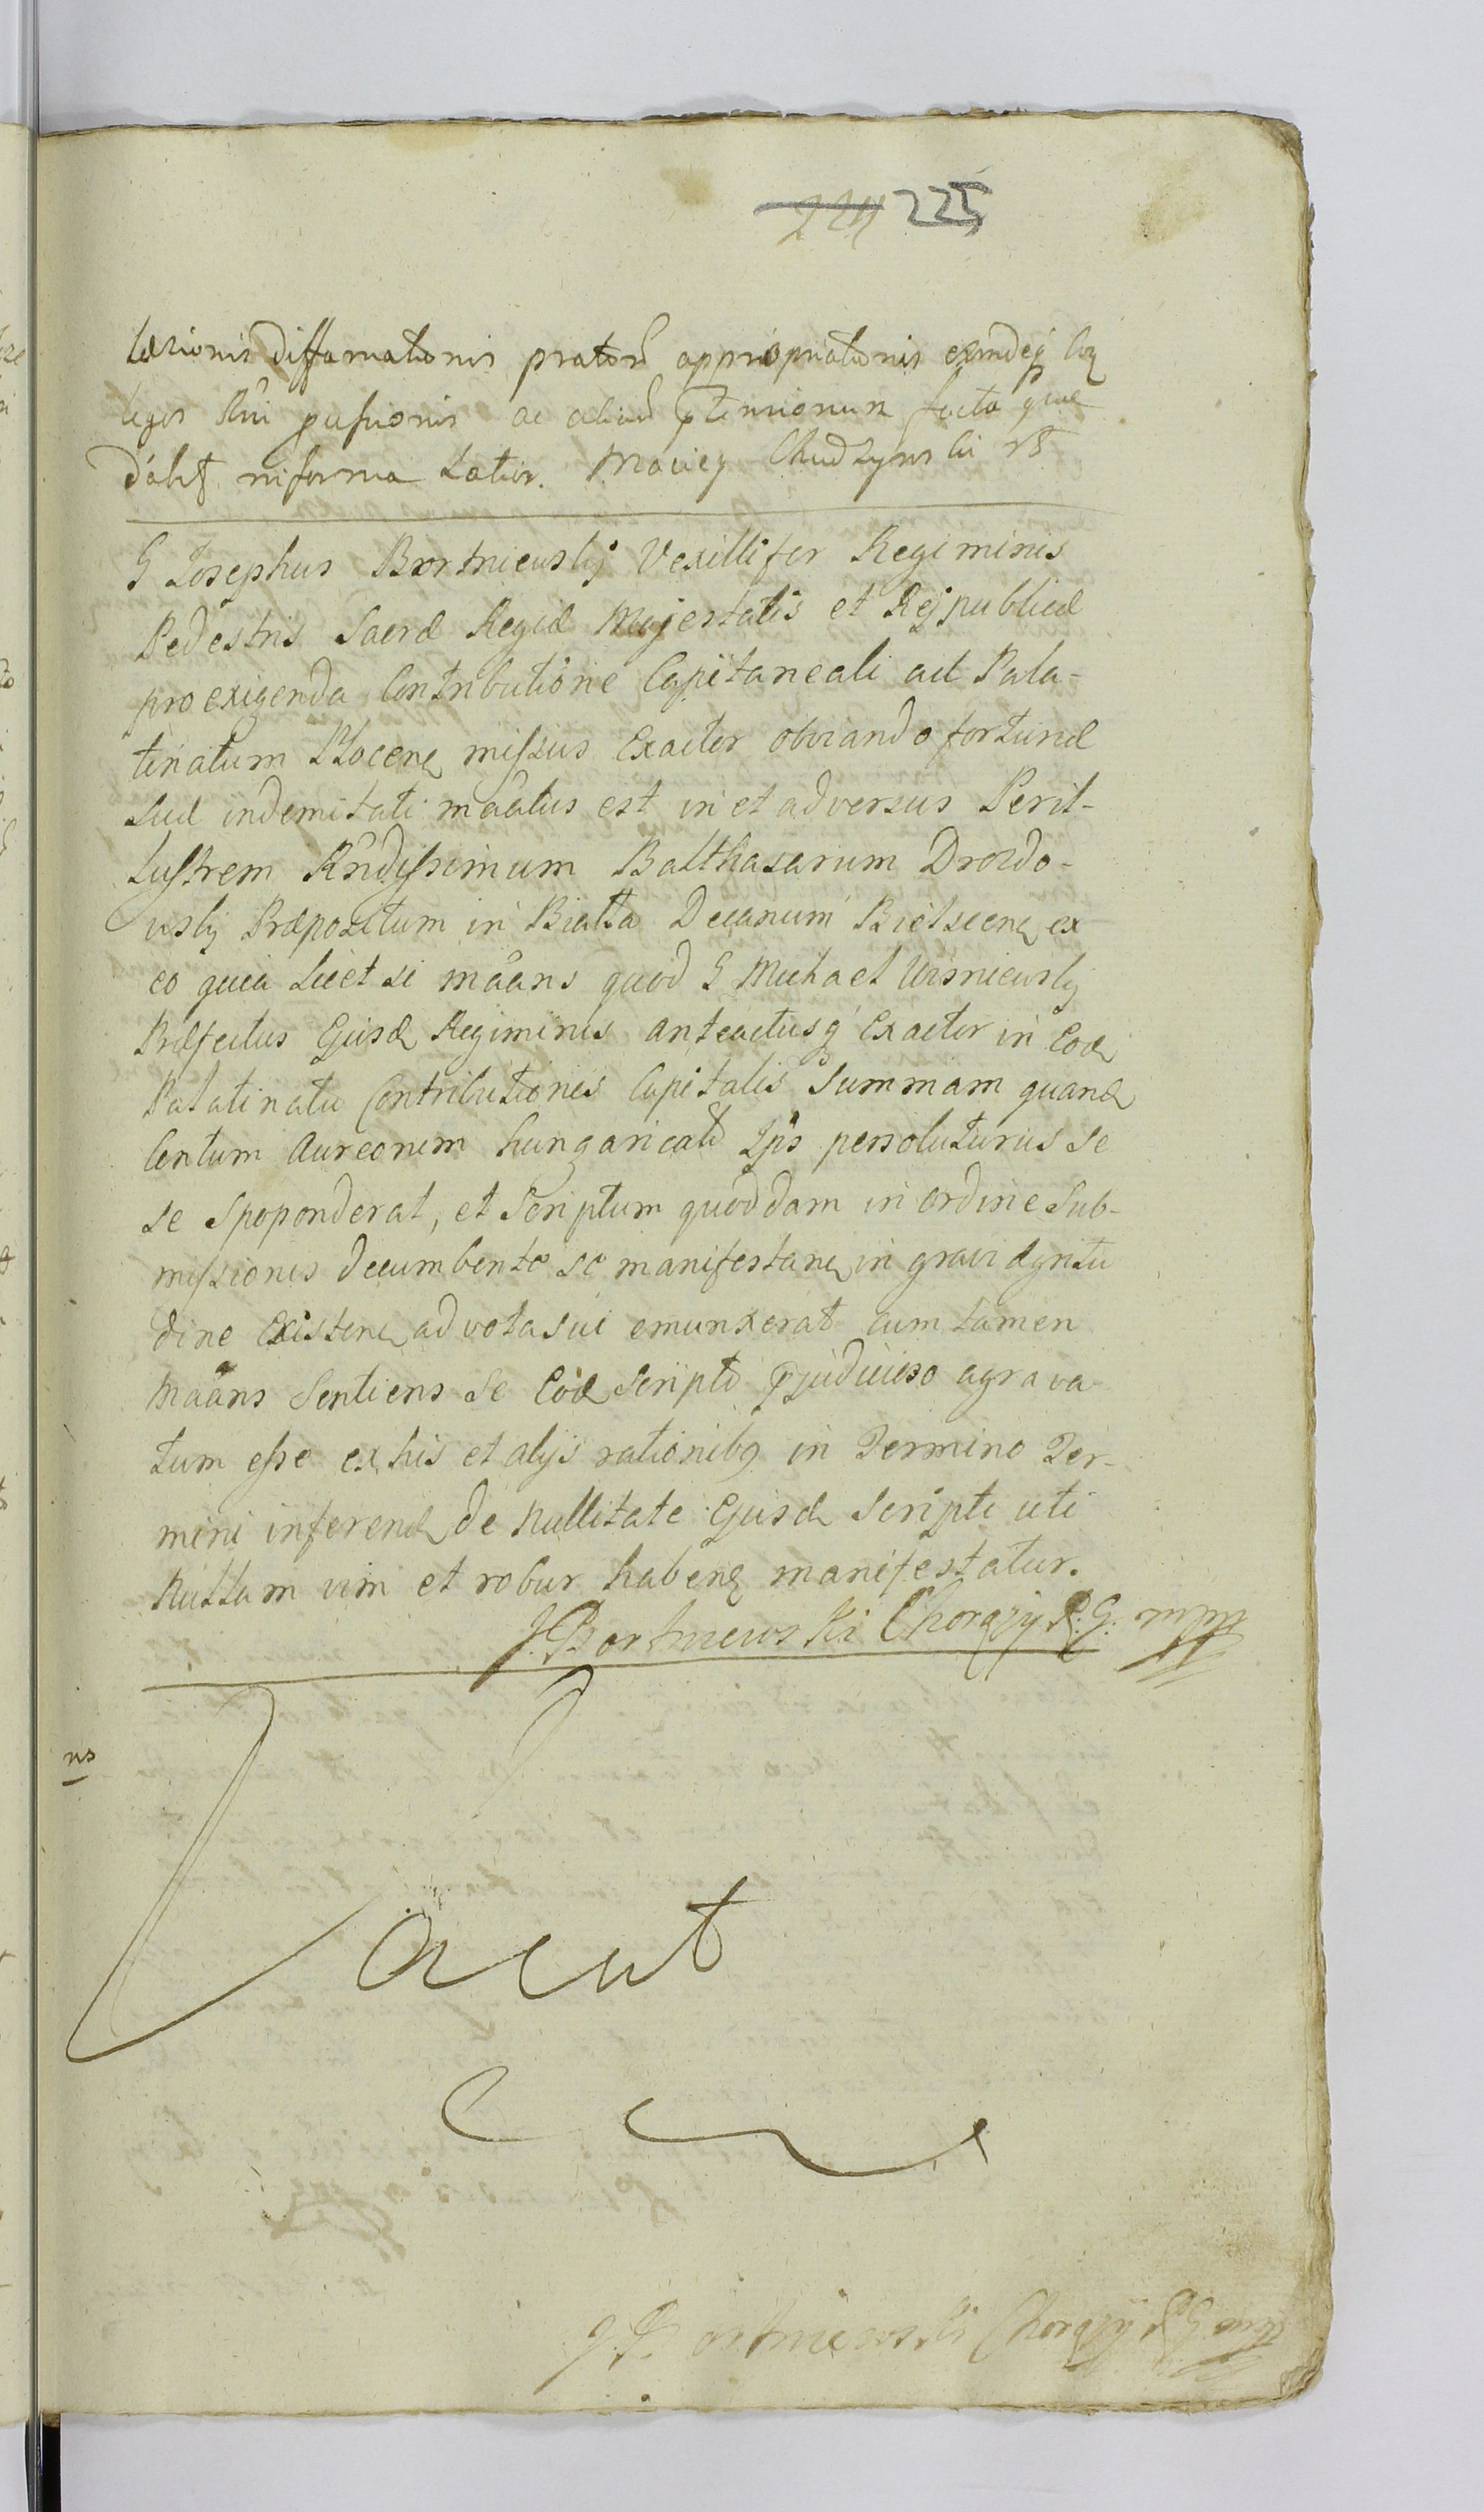 224 225
læsionis diffamationis prator̃ appropriationis
ac aliar̃ facta quæ
in forma latior. Maciey Chudzynski
G Iosephus Bortniewskj Vexillifer Regiminis
Pedestris Sacræ Regiæ Majestatis et Rejpublicæ
pro exigenda Contributione Capitaneali ad Pala-
tinatum Plocen missus Exactor obviando fortunæ
suæ indemitati mããtus est in et adversus Peril-
lustrem Rñdissimum Balthasarum Drozdo-
wskj Præpositum in Białła Decanum Bielscen ex
eo quia licet si mããns quod G Michael Wisniewskj
Præfectus Ejusd Regiminis anteactusq Exactor in Eod
Palatinatu Contributionis Capitalis Summam quand
Centum Aureorum hungaricalũ Ips persoluturus se
se spoponderat, et Scriptum quoddam in ordine Sub-
missionis decumbente se manifestan in gravi ægritu
dine Existen ad vota sui emunxerat cum tamen
mããns Sentiens se Eod Scripto pjudicioso agrava-
tum esse ex his et alijs rationibq in Termino Ter-
mini inferend de Nullitate Ejusd Scripti uti
Nullam vim et robur haben manifestatur.
J. Bortniewski Chorąży R: G: mpp
ns
Vacat
J. Bortniewski Chorąży R G mpp